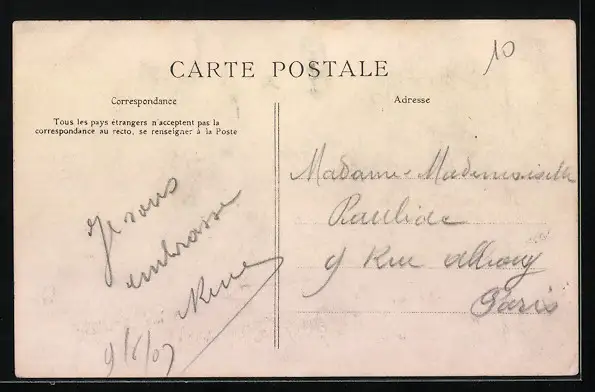 10
CARTE POSTALE
Correspondance
Tous les pays étrangers n'acceptent pas la
correspondance au recto, se renseigner à la Poste
Je vous
embrasse
9/6/07
Adresse
Madame Mademoiselle
9 Rue
Paris